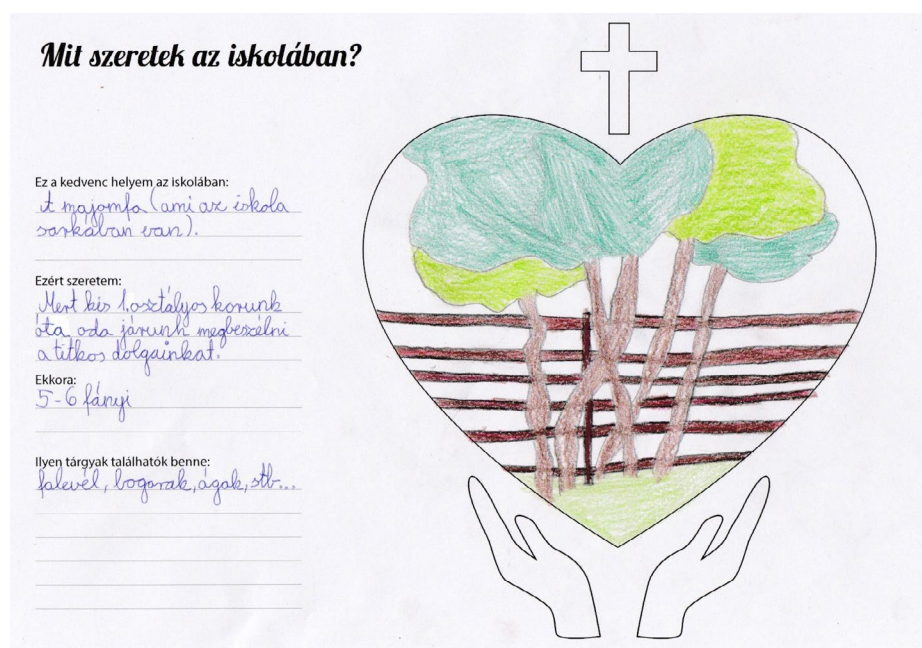 Mit szeretek az iskolában?
Ez a kedvenc helyem az iskolában:
A majomfa (ami az iskola
sarkában van).
Ezért szeretem:
Mert kis 1. osztályos korunk
óta oda járunk megbeszélni
a titkos dolgainkat.
Ekkora:
5-6 fányi
Ilyen tárgyak találhatók benne:
falevél, bogarak, ágak, stb...